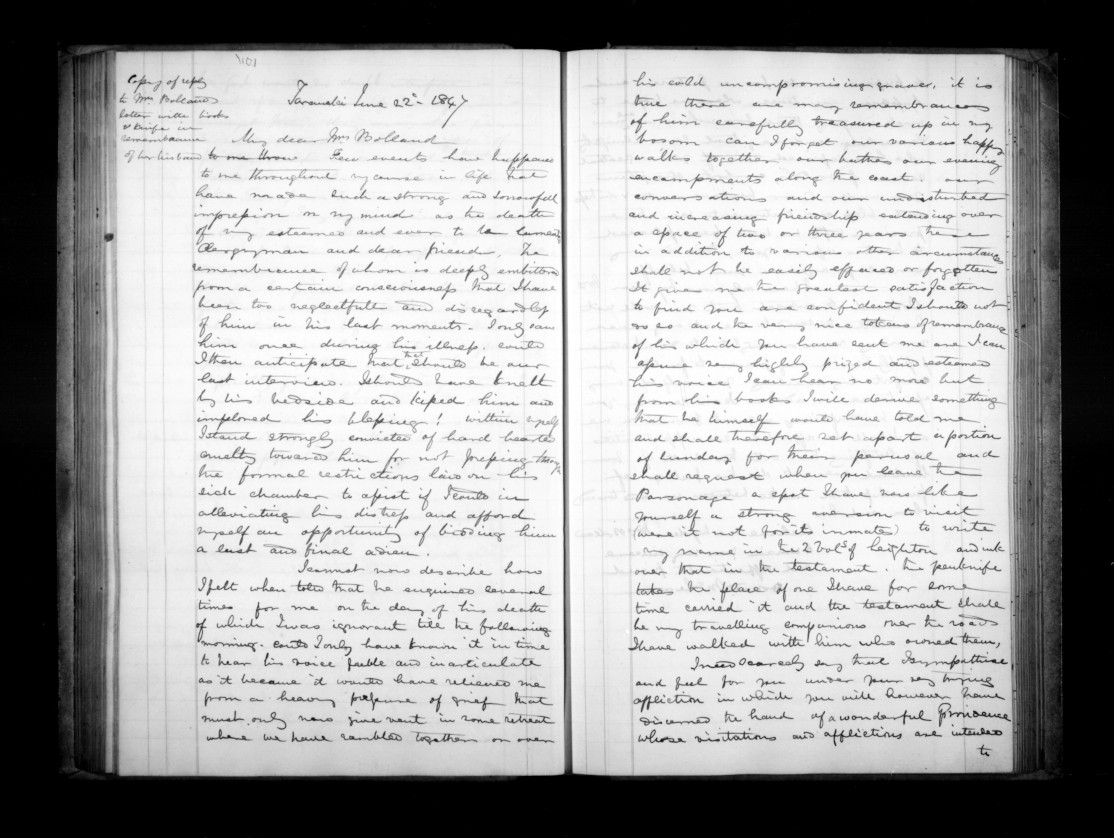 101
Copy of reply
to Mrs Bollands
letter with books
& knife in
remembrance
of her husband
Taranaki June 22nd 1847
My dear Mrs Bolland
to one throne Few events have happened
to me throughout my course in life that
have made such a strong and sorrowfull
impression on my mind as the death
of my esteemed and ever to be lamented
Clergyman and dear friend, the
remembrance of whom is deeply embittered
from a certain consciousness that I have
been too neglectfull and disregardless
of him in his last moments. I only saw
him once during his illness. could
I then anticipate that that should be our
last interview. I should have knelt
by his bedside and kissed him and
implored his blessing! within myself
I stand strongly convicted of hard hearted
cruelty towards him for not pressing through
the formal restrictions laid on his
sick chamber to assist if I could in
alleviating his distress and afford
myself an opportunity of bidding him
a last and final adieu.
I cannot now describe how
I felt when told that he enquired several
times for me on the day of his death
of which I was ignorant till the following
morning. could I only have known it in time
to hear his voice feeble and inarticulate
as it became it would have relieved me
from a heavy pressure of grief that
must only now give vent in some retreat
where we have rambled together or over
his cold uncompromising grave, it is
true there are many remembrances
of him carefully treasured up in my
bosom can I forget our various happy
walks together our bathes our evening
encampments along the coast. our
conversations and our undisturbed
and increasing friendship extending over
a space of two or three years these
in addition to various other circumstances
shall not be easily effaced or forgotten
It gives me the greatest satisfaction
to find you are confident I should not
do so and the very nice tokens of remembrance
of his which you have sent me are I can
assure very highly prized and esteemed
his voice I can hear no more but
from his books I will derive something
that he himself would have told me
and shall therefore set apart a portion
of Sunday for their perusal and
shall request when you leave the
Parsonage a spot I have now like
yourself a strong aversion to visit
(were it not for its inmates) to write
my name in the 2 vols of Leighton and ink
over that in the testament. the penknife
takes the place of one I have for some
time carried it and the testament shall
be my travelling companions over the roads
I have walked with him who owned them,
I need scarcely say that I sympathise
and feel for you under your very trying
affliction in which you will however have
discerned the hand of a wonderful Providence
whose visitations and afflictions are intended
to